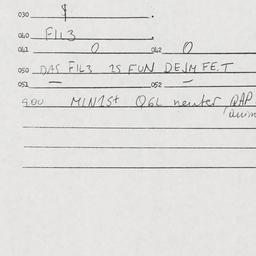 030 $ .
040 FIL3 .
041 0 042 0
050 DAS FIL3 IS FUN DEJM FE.T
051 — 052 —
9.00 MIN1St Q6L neuter, QAP